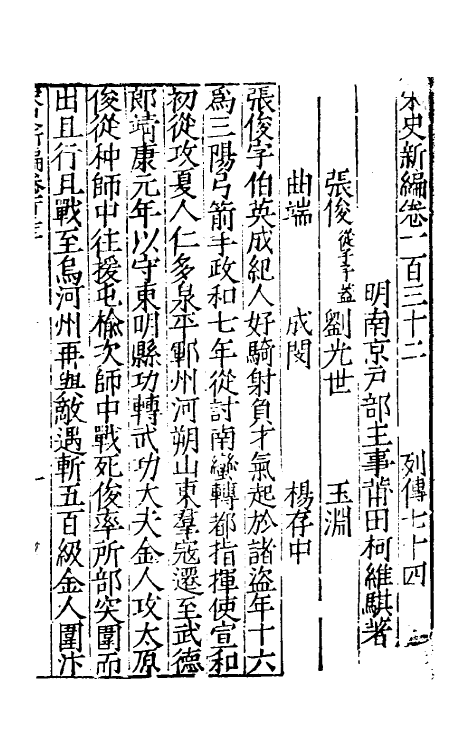 宋史新編卷一百三十二　列傳七十四
明南京戶部主事莆田柯維騏著
張俊從子子蓋　劉光世　王淵
曲端　成閔　楊存中
張俊字伯英成紀人好騎射負才氣起於諸盜年十六
爲三陽弓箭手政和七年從討南蠻轉都指揮使宣和
初從攻夏人仁多泉平鄆州河朔山東羣寇遷至武德
郎靖康元年以守東明縣功轉武功大夫金人攻太原
俊從种師中往援屯榆次師中戰死俊率所部突圍而
出且行且戰至烏河州再與敵遇斬五百級金人圍汴
一